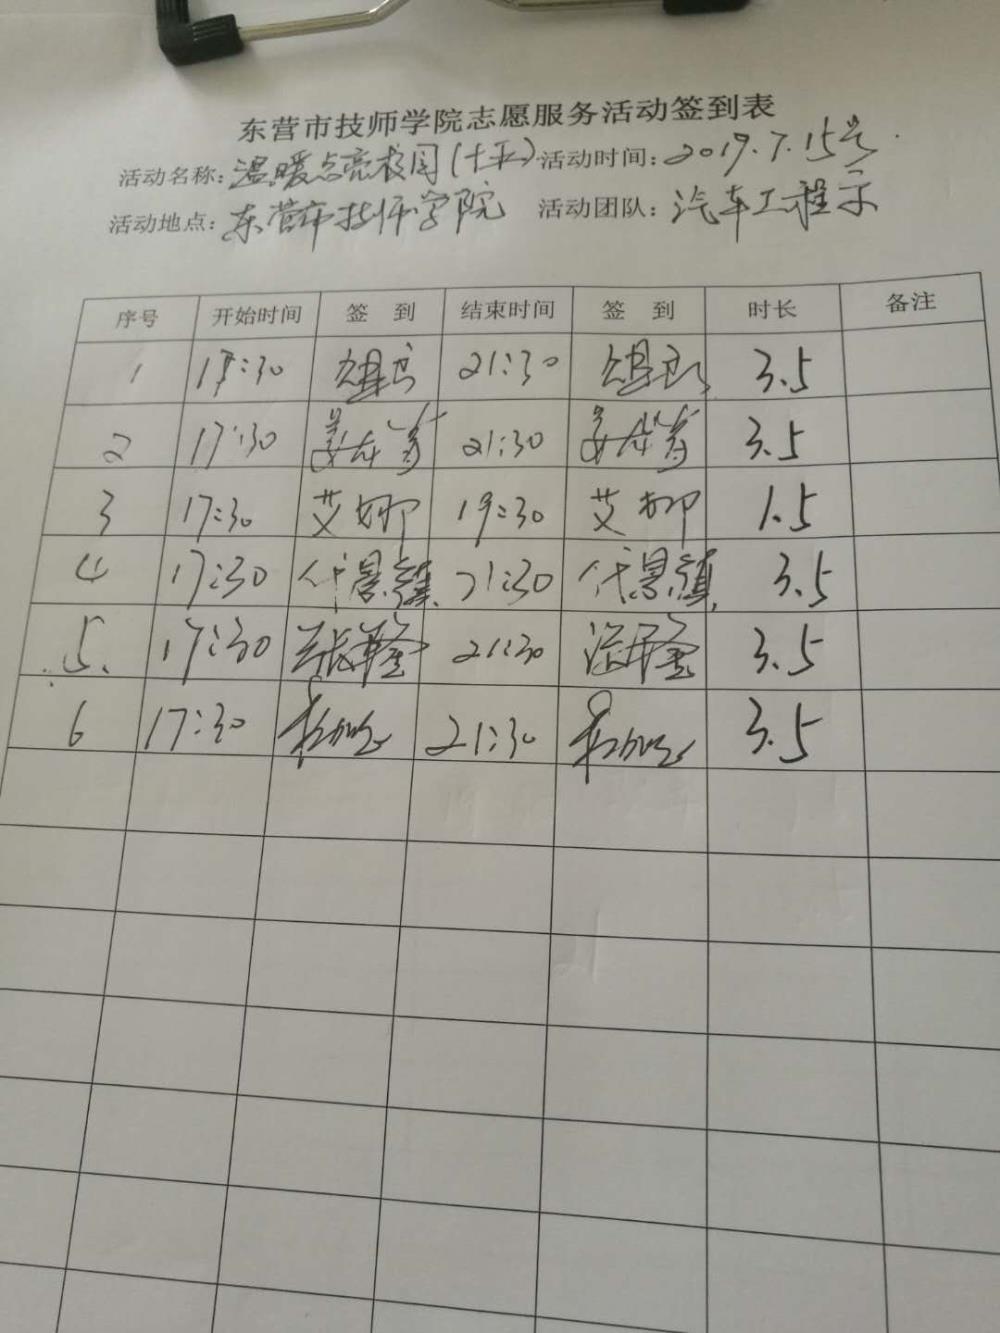 东营市技师学院志愿服务活动签到表
活动名称:温暖点亮校园(十五)活动时间:2019.7.15号
活动地点:东营市技师学院 活动团队:汽车工程系
序号 开始时间 签 到 结束时间 签 到 时长 备注
1 17:30 21:30 3.5
2 17:30 姜 21:30 姜 3.5
3 17:30 艾娜 19:30 艾娜 1.5
4 17:30 代景镇 21:30 代景镇 3.5
5. 17:30 张隆 21:30 张隆 3.5
6 17:30 21:30 3.5